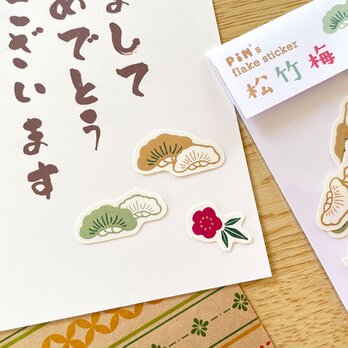 まして
めでとう
ございます
PiM's
flake sticker
松竹梅